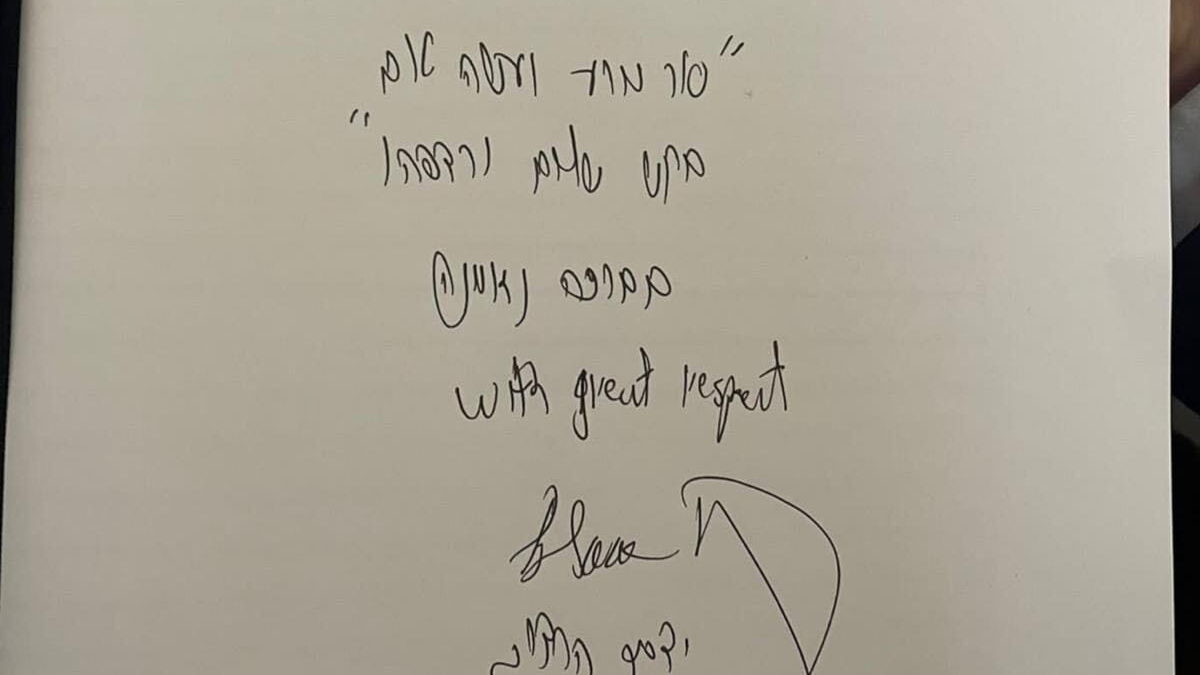 "סור מרע ועשה טוב
בקש שלום ורדפהו"
בברכה נאמנה
with great respect
יצחק הרצוג